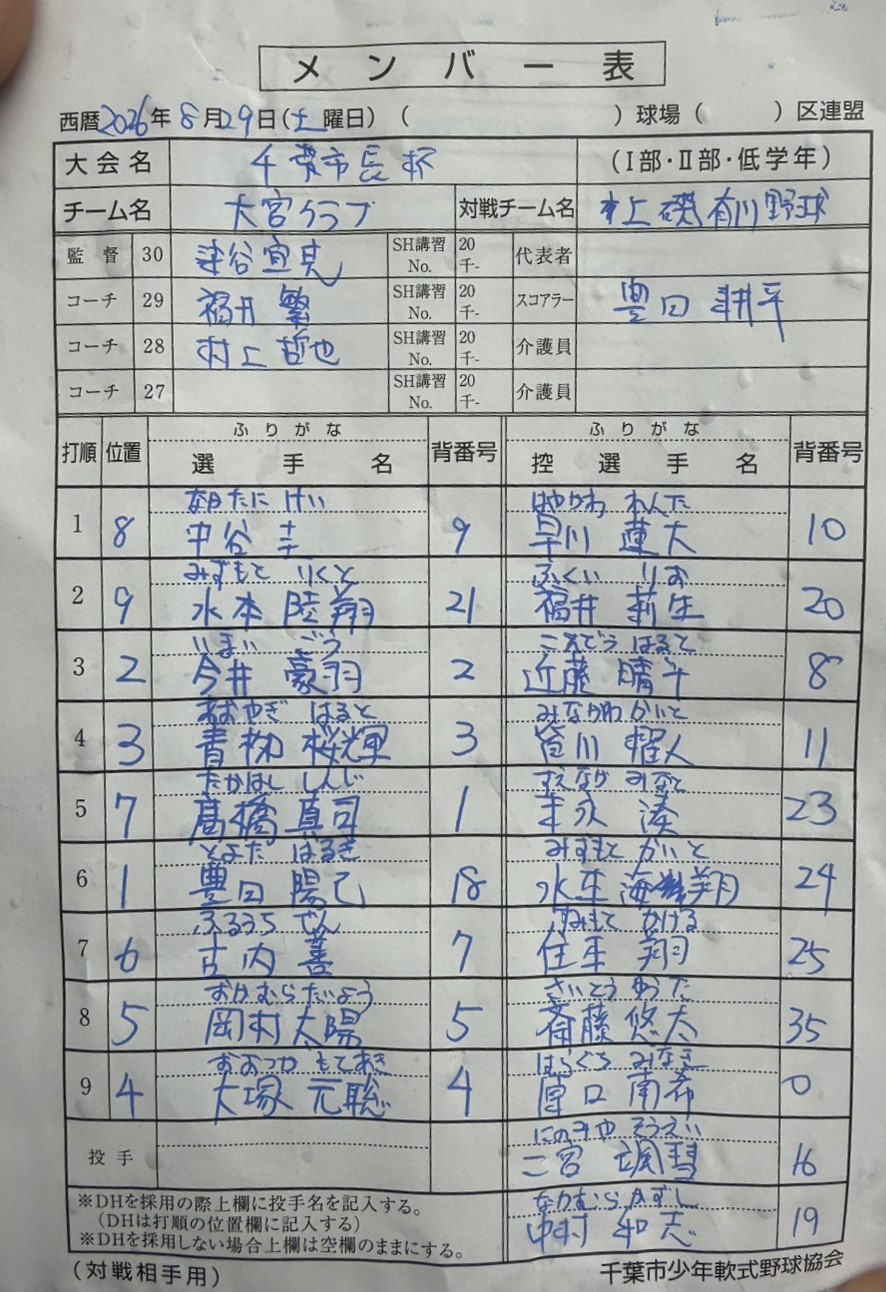 メンバー表
西暦2026年8月29日(土曜日) ( )球場( )区連盟
大会名 千葉市長杯 (Ⅰ部・Ⅱ部・低学年)
チーム名 大宮クラブ 対戦チーム名 村上磯有川野球
監督 30 染谷宣克 SH講習No. 20 千- 代表者
コーチ 29 福井繁 SH講習No. 20 千- スコアラー 豊田耕平
コーチ 28 村上哲也 SH講習No. 20 千- 介護員
コーチ 27 SH講習No. 20 千- 介護員
打順 位置 ふりがな 選手名 背番号 ふりがな 控選手名 背番号
なかたに けい はやかわ れんた
1 8 中谷 9 早川 蓮大 10
みずもと りくと ふくい りお
2 9 水本 陸翔 21 福井 莉生 20
いまい ごう こんどう はると
3 2 今井 豪羽 2 近藤 晴斗 8
あおやぎ はると みなかわ かいと
4 3 青柳 桜輝 3 皆川 櫂人 11
たかはし しんじ すえなが みなと
5 7 髙橋 真司 1 末永 湊 23
とよだ はるき みずもと かいと
6 1 豊田 陽己 18 水本 海翔 24
ふるうち ぜん すみもと かける
7 6 古内 善 7 住本 翔 25
おかむら たいよう さいとう ゆうた
8 5 岡村 太陽 5 斎藤 悠太 35
おおつか もとあき はらぐち みなき
9 4 大塚 元聡 4 原口 南希 0
にのみや そうえい
投手 二宮 颯彗 16
※DHを採用の際上欄に投手名を記入する。 なかむら かずし
(DHは打順の位置欄に記入する) 中村 和志 19
※DHを採用しない場合上欄は空欄のままにする。
(対戦相手用) 千葉市少年軟式野球協会